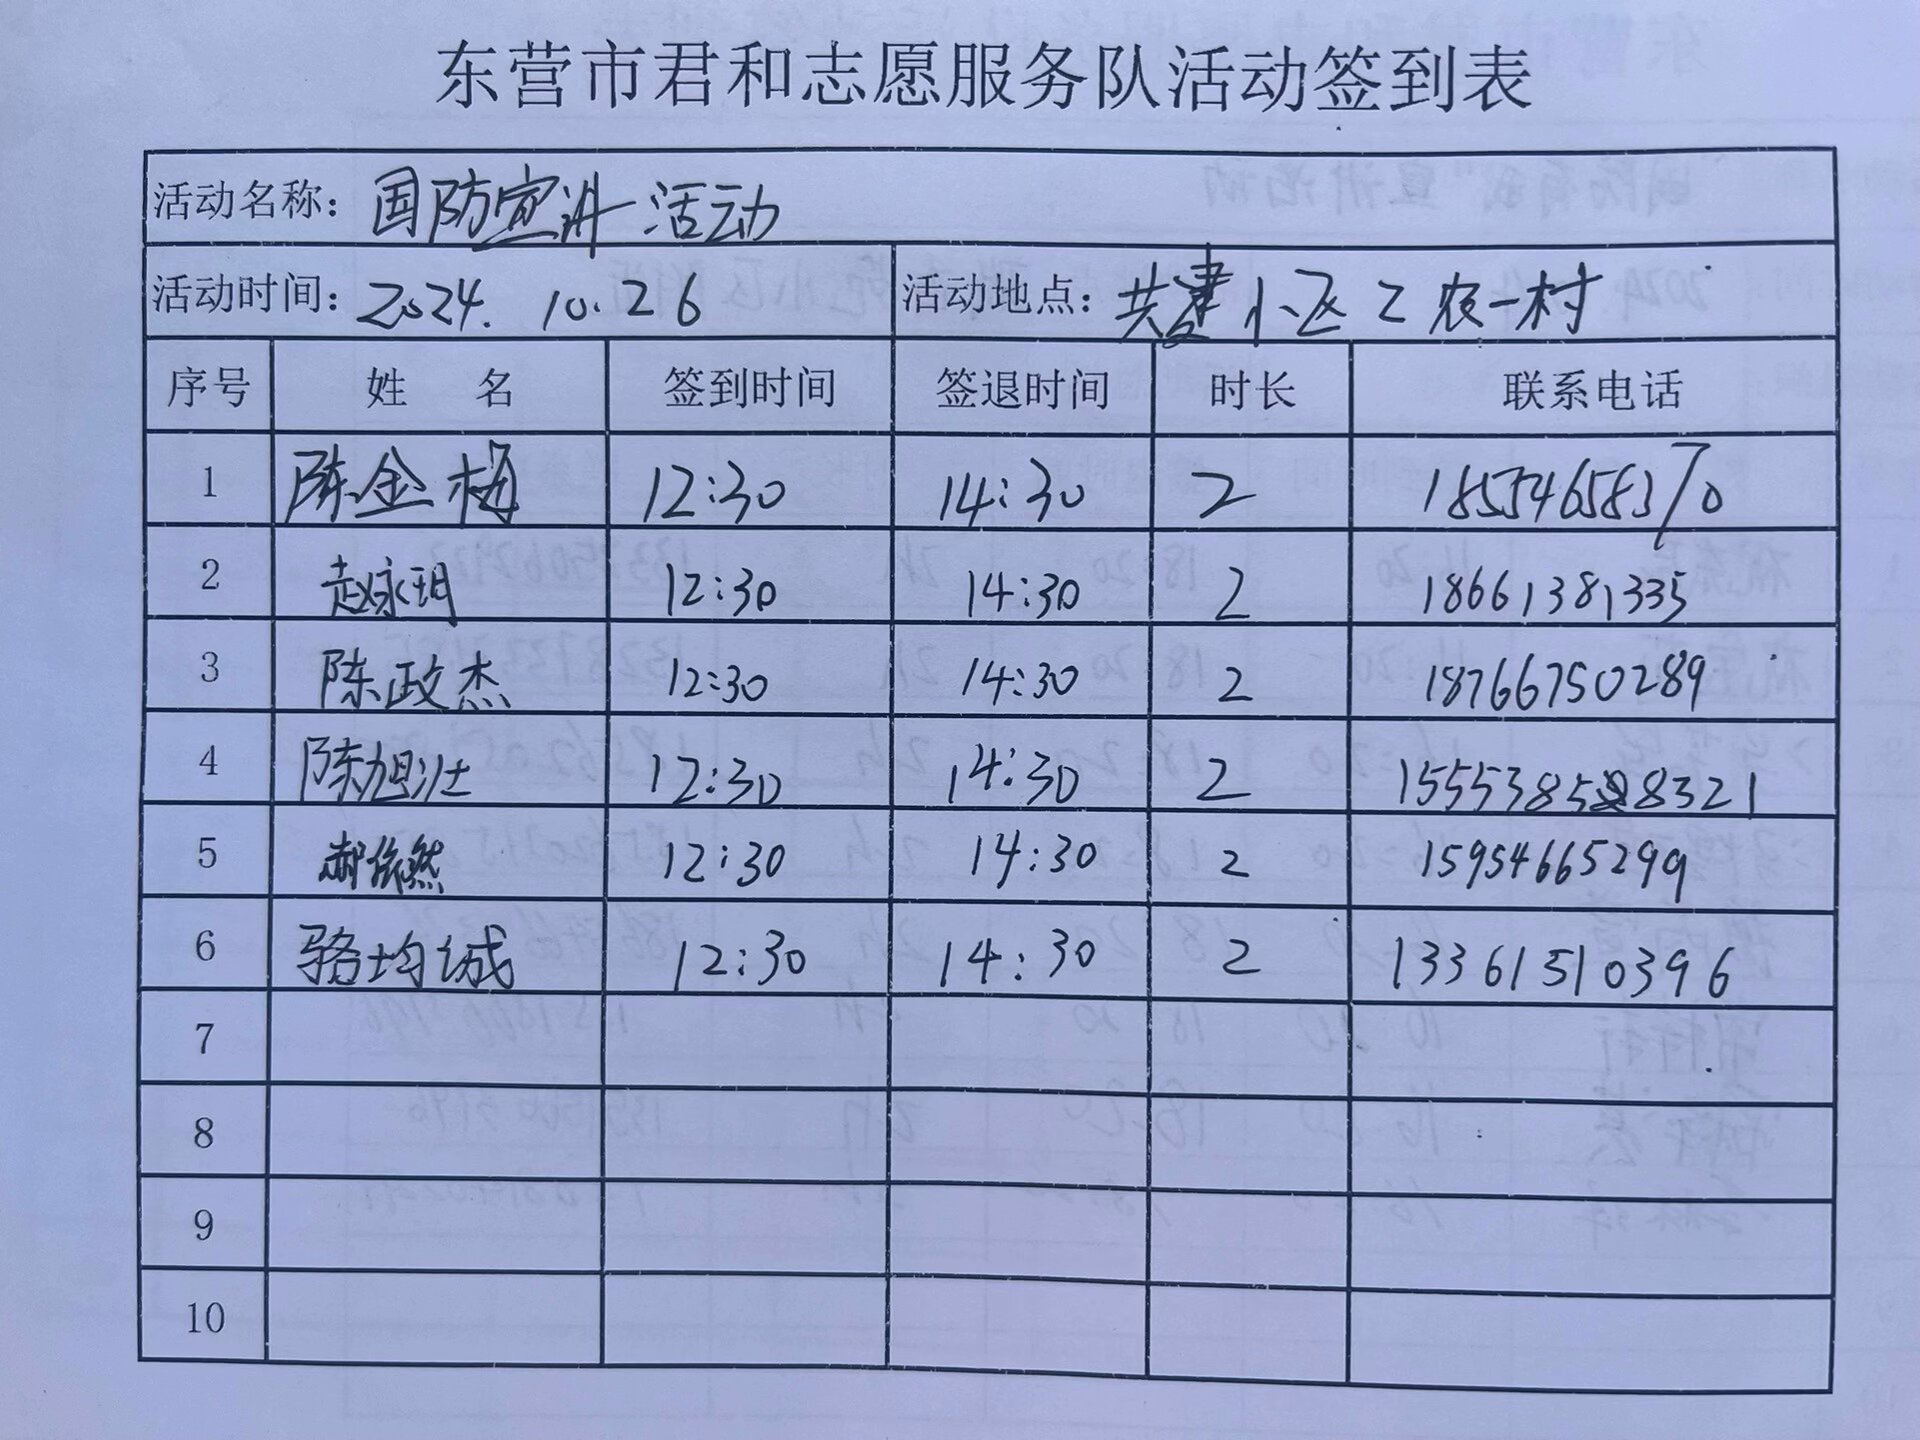 东营市君和志愿服务队活动签到表
活动名称: 国防宣讲活动
活动时间: 2024. 10. 26 活动地点: 共建小区工农一村
序号 姓 名 签到时间 签退时间 时长 联系电话
1 陈金梅 12:30 14:30 2 18554658370
2 赵永玥 12:30 14:30 2 18661381335
3 陈政杰 12:30 14:30 2 18766750289
4 陈旭 12:30 14:30 2
5 郝依然 12:30 14:30 2 15954665299
6 骆均诚 12:30 14:30 2 13361510396
7
8
9
10